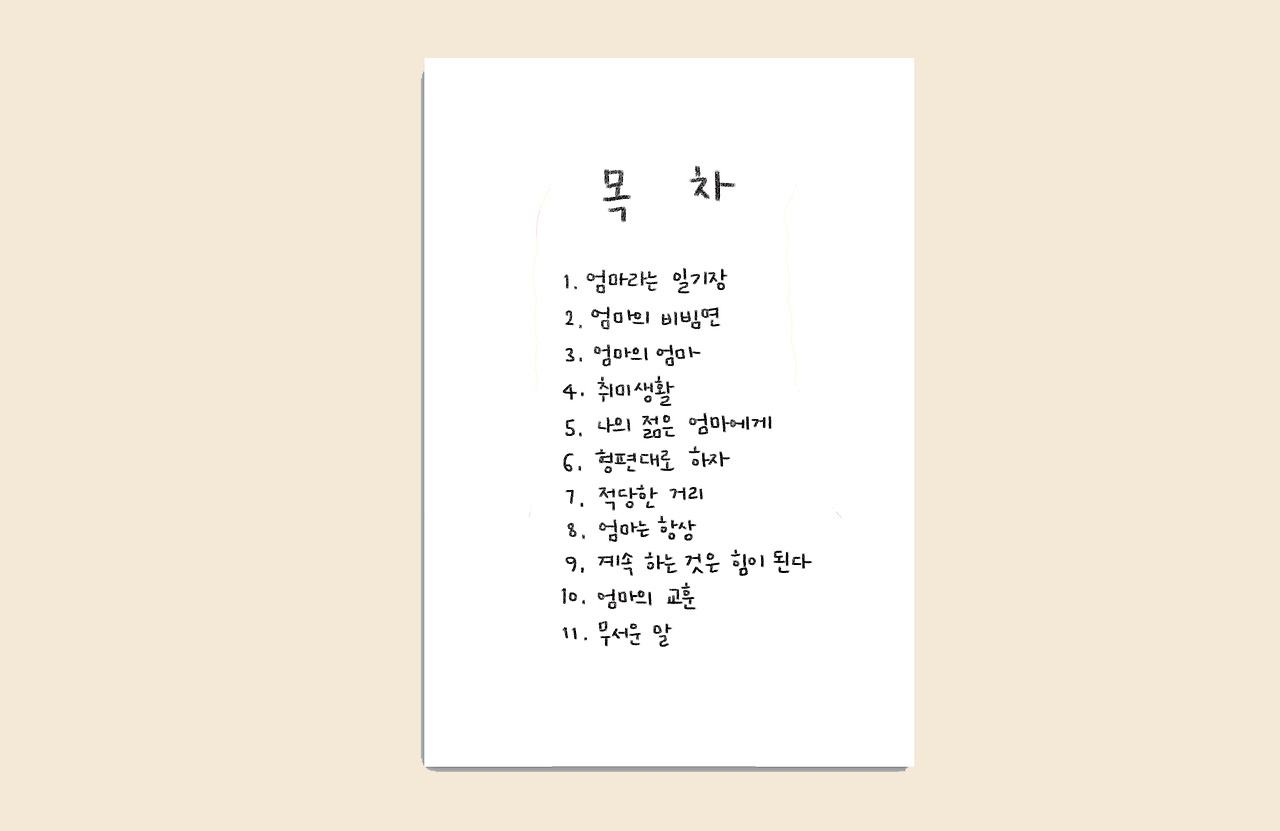 목 차
1. 엄마라는 일기장
2. 엄마의 비빔면
3. 엄마의 엄마
4. 취미생활
5. 나의 젊은 엄마에게
6. 형편대로 하자
7. 적당한 거리
8. 엄마는 항상
9. 계속 하는 것은 힘이 된다
10. 엄마의 교훈
11. 무서운 말